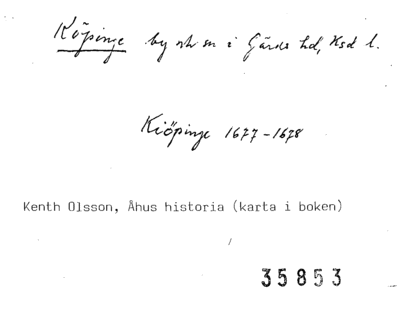 Köpinge by och sn i Gärds hd, Ksd l.
Kiöpinge 1677-1678
Kenth Olsson, Åhus historia (karta i boken)
35853